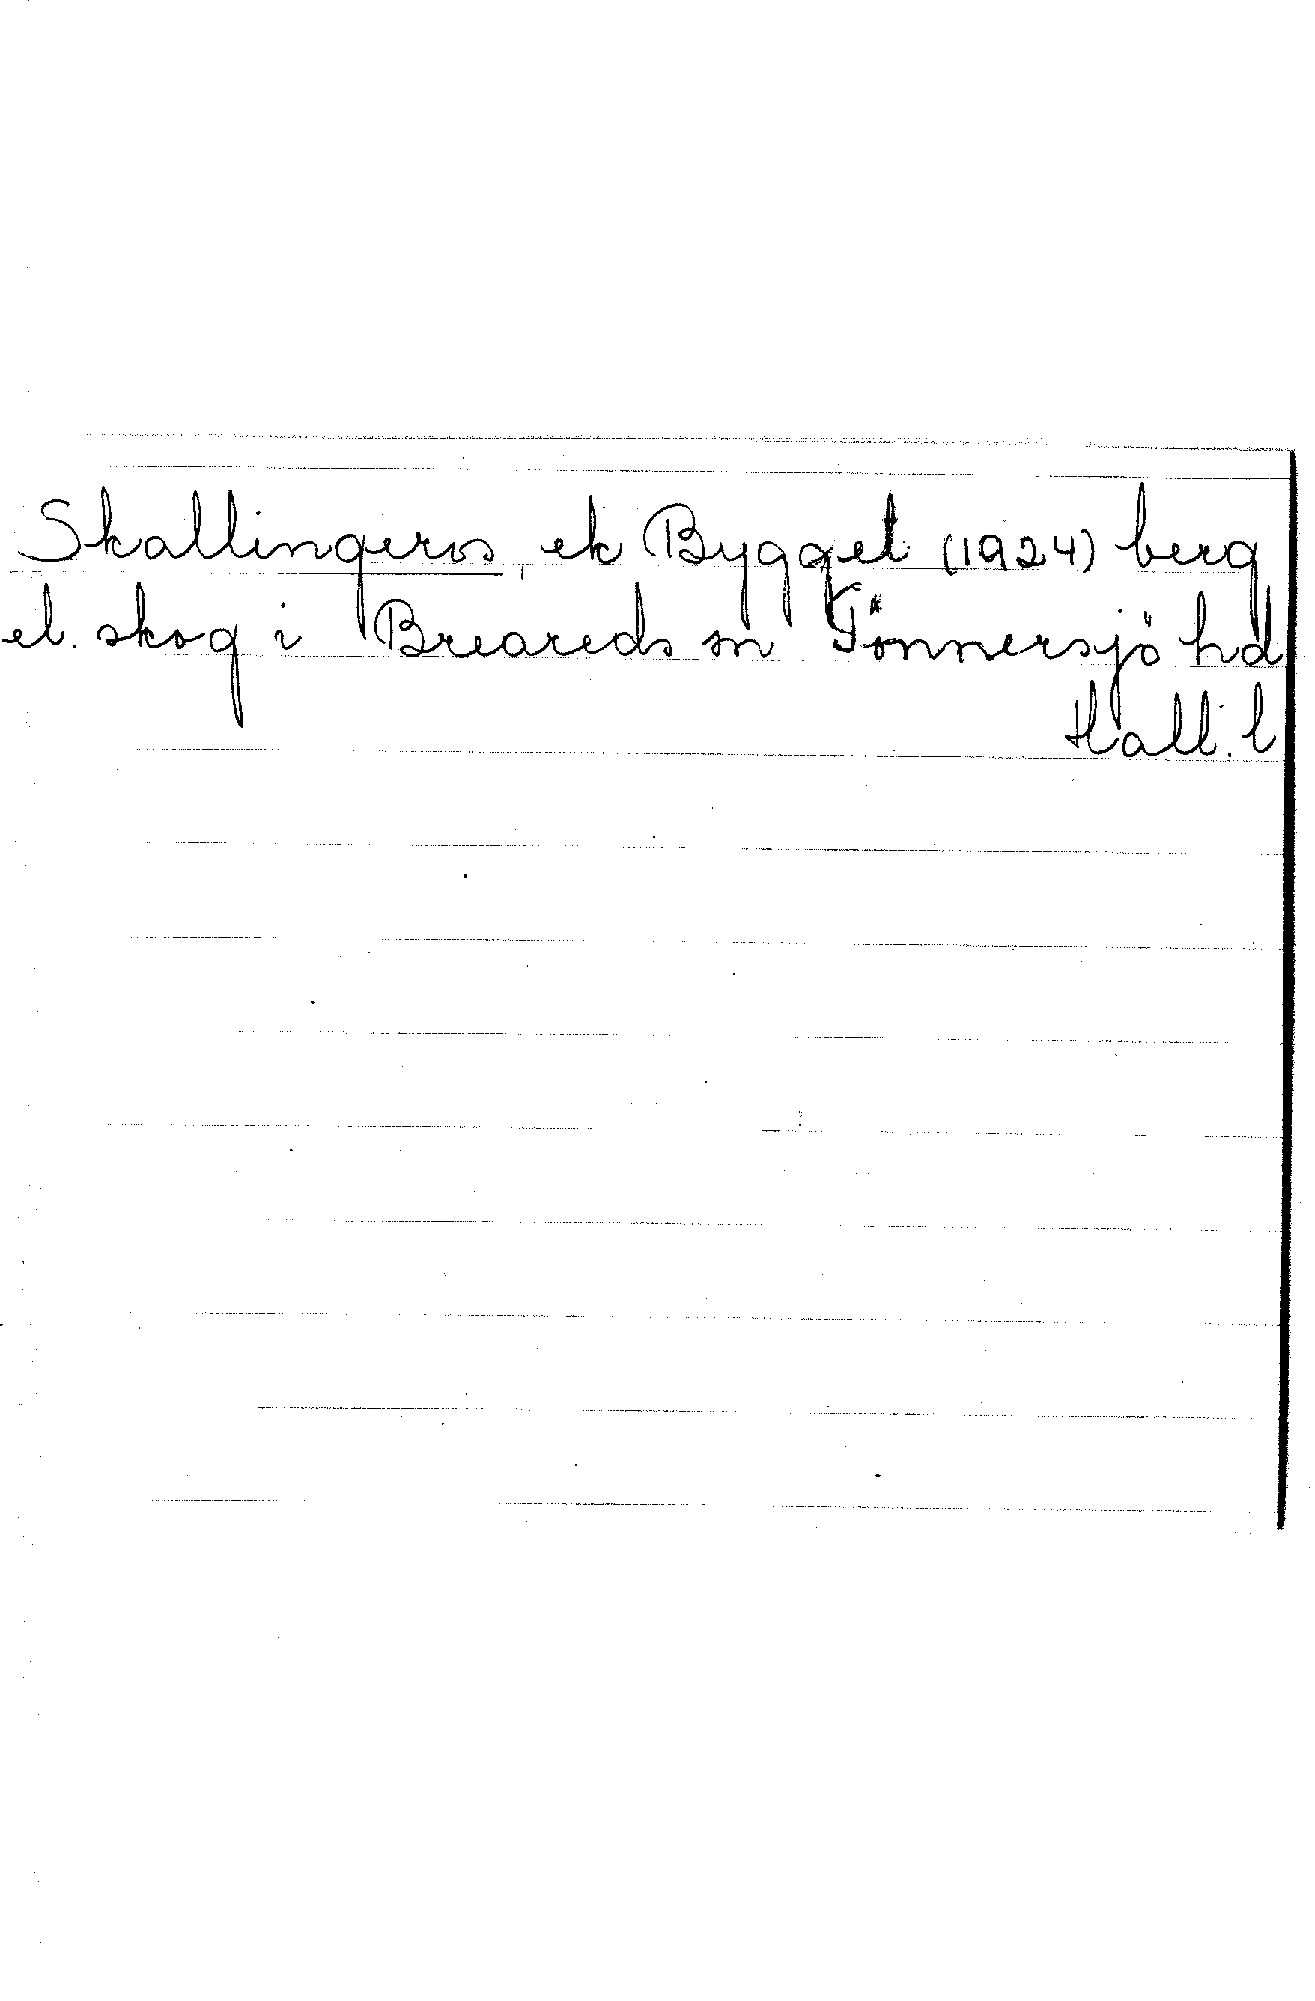 Skallingeros, ek Bygget (1924) berg
el. skog i Breareds sn Tönnersjö hd
Hall. l